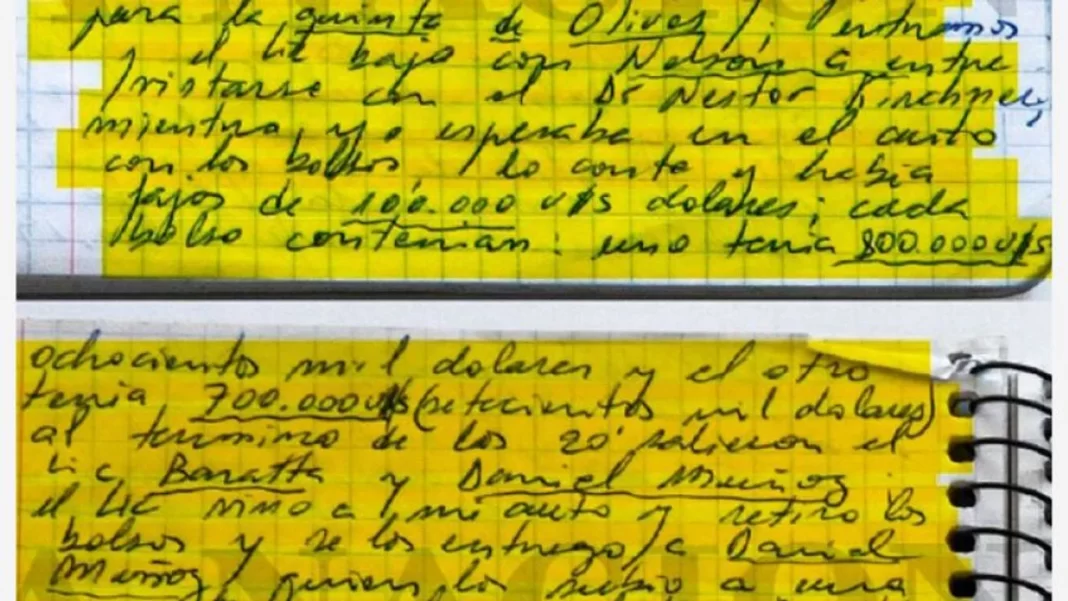 para la quinta de Olivos /; entramos
y el Lic bajo con Nelson a entre
/vistarse con el Dr Nestor Kirchner,
mientras, yo esperaba en el auto
con los bolsos, / lo conte y habia
fajos de 100.000 u/s dolares; cada
bolso contenian: uno tenia 800.000 u/s
ochocientos mil dolares y el otro
tenia 700.000 u/s (setecientos mil dolares)
al termino de los 20' salieron el
Lic Baratta y Daniel Muñoz
el Lic vino a / mi auto y retiro los
bolsos y se los entrego / a Daniel
Muñoz / quien los subio a una